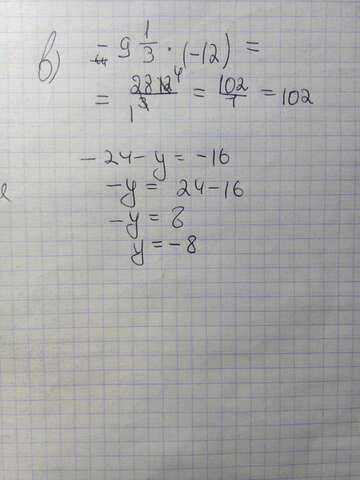 в) - 9 1/3 · (-12) =
= 28 12 4 / 1 3 = 102/1 = 102
- 24 - y = -16
-y = 24-16
-y = 8
y = -8